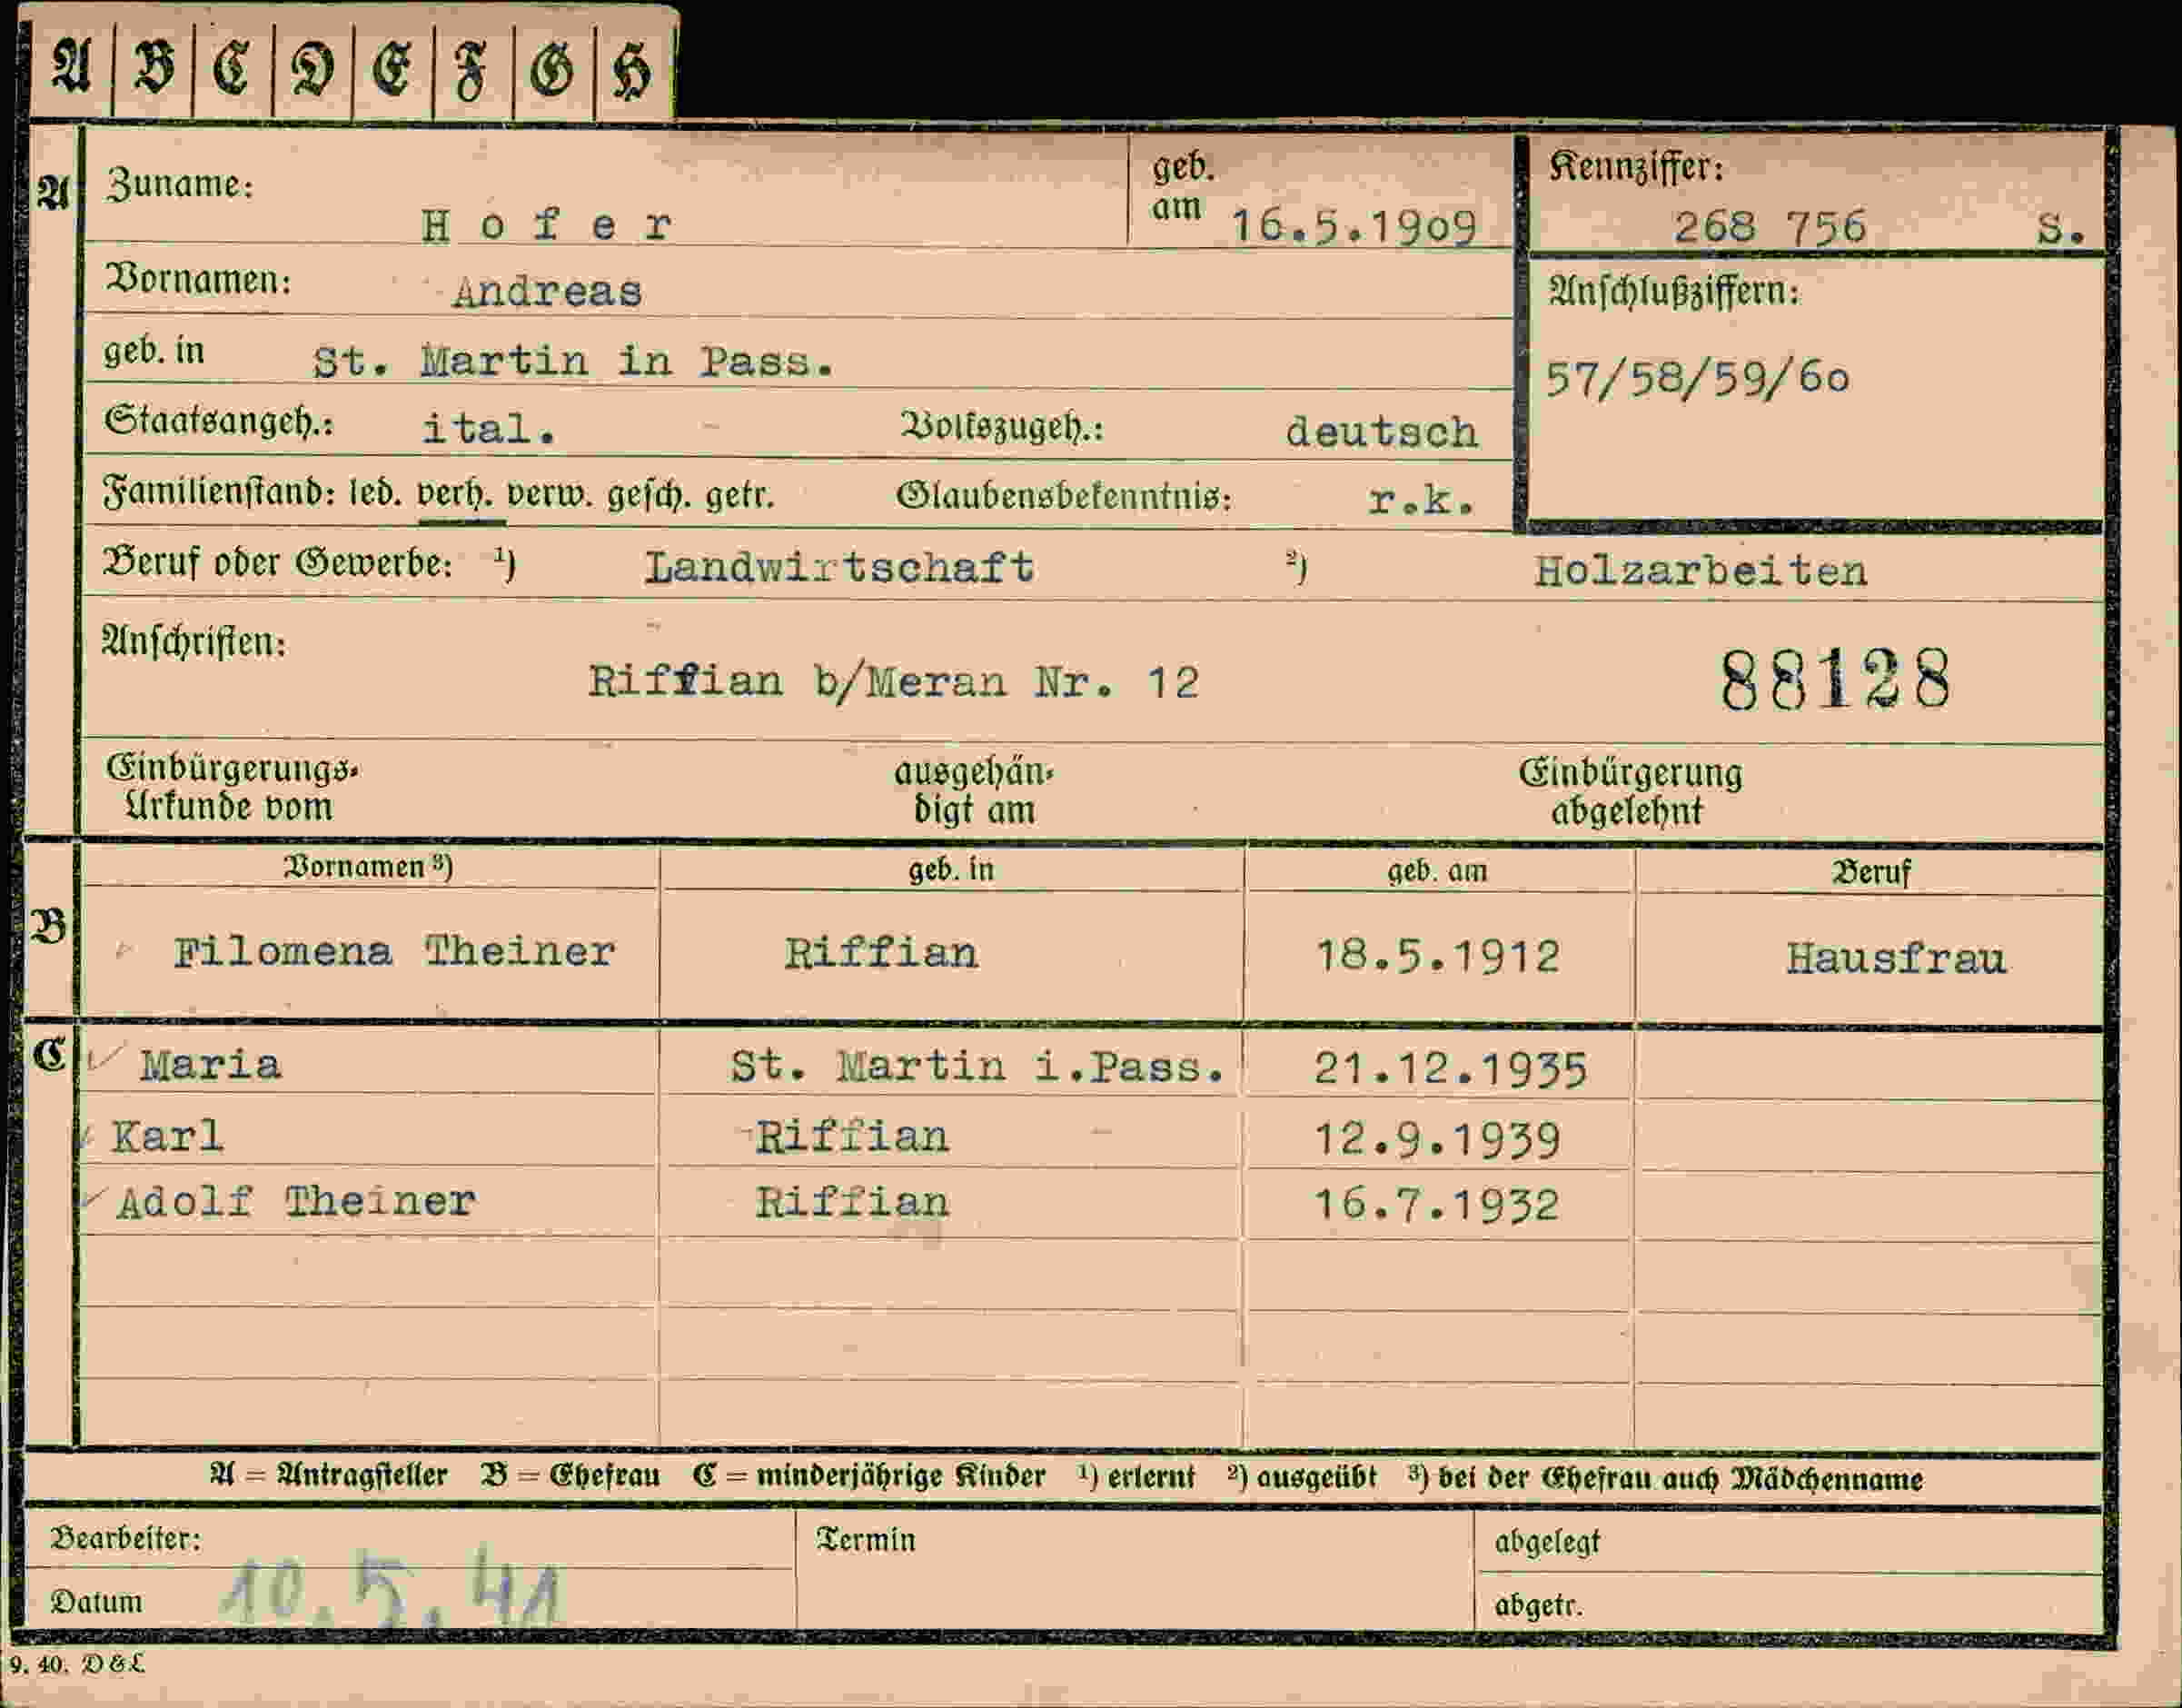 A B C D E F G H
A Zuname: Hofer geb. am 16.5.1909 Kennziffer: 268 756 S.
Vornamen: Andreas Anschlußziffern:
geb. in St. Martin in Pass. 57/58/59/60
Staatsangeh.: ital. Volkszugeh.: deutsch
Familienstand: led. verh. verw. gesch. getr. Glaubensbekenntnis: r.k.
Beruf oder Gewerbe: 1) Landwirtschaft 2) Holzarbeiten
Anschriften: Riffian b/Meran Nr. 12 88128
Einbürgerungs- ausgehän- Einbürgerung
Urkunde vom digt am abgelehnt
Vornamen 3) geb. in geb. am Beruf
B Filomena Theiner Riffian 18.5.1912 Hausfrau
C Maria St. Martin i.Pass. 21.12.1935
Karl Riffian 12.9.1939
Adolf Theiner Riffian 16.7.1932
A = Antragsteller B = Ehefrau C = minderjährige Kinder 1) erlernt 2) ausgeübt 3) bei der Ehefrau auch Mädchenname
Bearbeiter: Termin abgelegt
Datum 10.5.41 abgetr.
9. 40. D&L